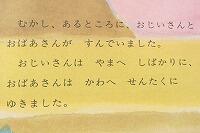 むかし、あるところに、おじいさんと
おばあさんが　すんでいました。
おじいさんは　やまへ　しばかりに、
おばあさんは　かわへ　せんたくに
ゆきました。